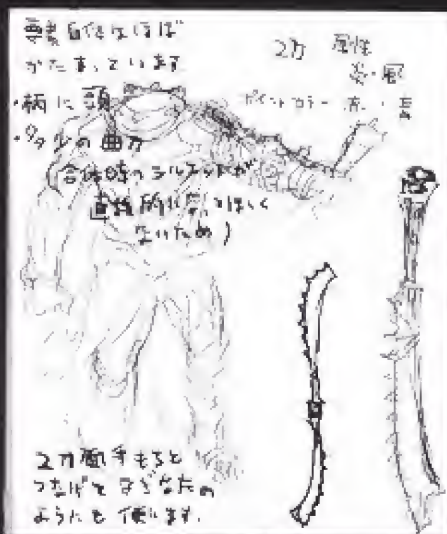 要素自体はほぼ
かたまっています
・柄に頭
・多少の曲刀
合体時のシルエットが
直線的になってほしく
ないため)
2刀 属性
炎・風
ポイントカラー 赤・青
2刀両手もちと
つなげてなぎなたの
ように使います。